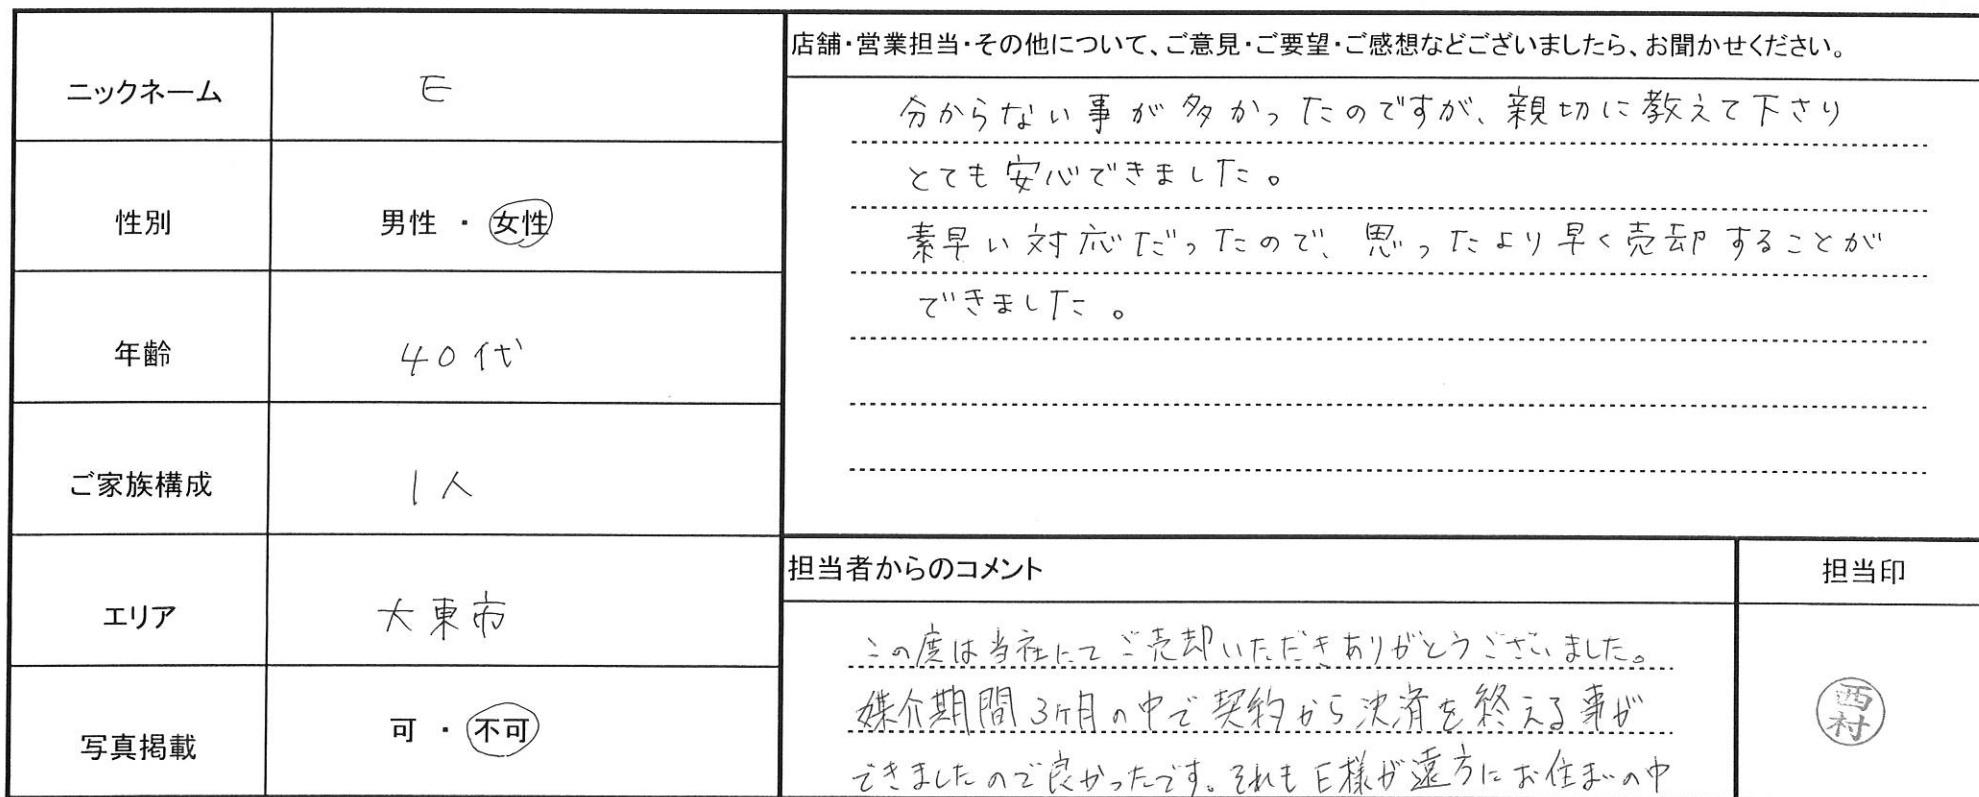 ニックネーム
E
性別
男性 ・ 女性
年齢
40代
ご家族構成
1人
エリア
大東市
写真掲載
可 ・ 不可
店舗・営業担当・その他について、ご意見・ご要望・ご感想などございましたら、お聞かせください。
分からない事が多かったのですが、親切に教えて下さり
とても安心できました。
素早い対応だったので、思ったより早く売却することが
できました。
担当者からのコメント
この度は当社にてご売却いただきありがとうございました。
媒介期間3ヶ月の中で契約から決済を終える事が
できましたので良かったです。それもE様が遠方にお住まいの中
担当印
西村